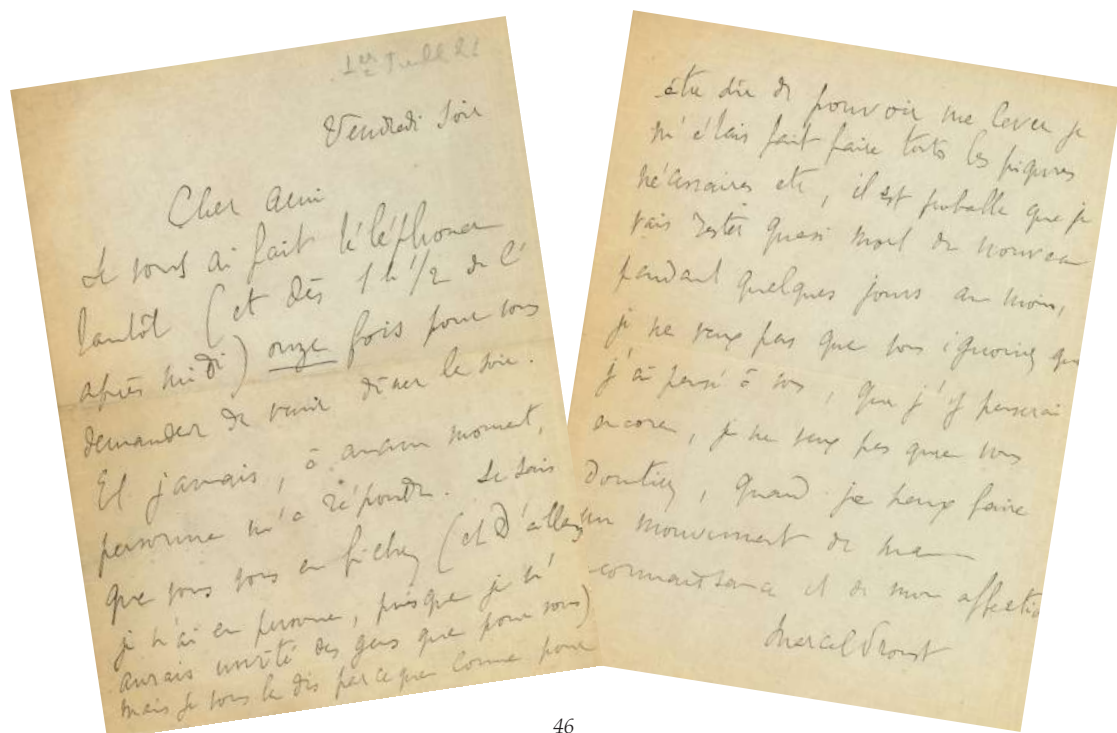 1er Juill 21
Vendredi soir
Cher ami
Je vous ai fait téléphoner
tantôt (et dès 1 h 1/2 de l'
après midi) onze fois pour vous
demander de venir dîner le soir.
Et jamais, à aucun moment,
personne n'a répondu. Je sais
que vous vous en fichez (et d'ailleurs
je n'ai eu personne, puisque je n'
aurais invité des gens que pour vous)
mais je vous le dis parce que comme pour
être sûr de pouvoir me lever je
m'étais fait faire toutes les piqures
nécessaires etc, il est probable que je
vais rester quasi mort de nouveau
pendant quelques jours au moins,
je ne veux pas que vous ignoriez que
j'ai pensé à vous, que j'y penserai
encore, je ne veux pas que vous
doutiez, quand je peux faire
un mouvement de ma
connaissance et de mon affection
Marcel Proust
46